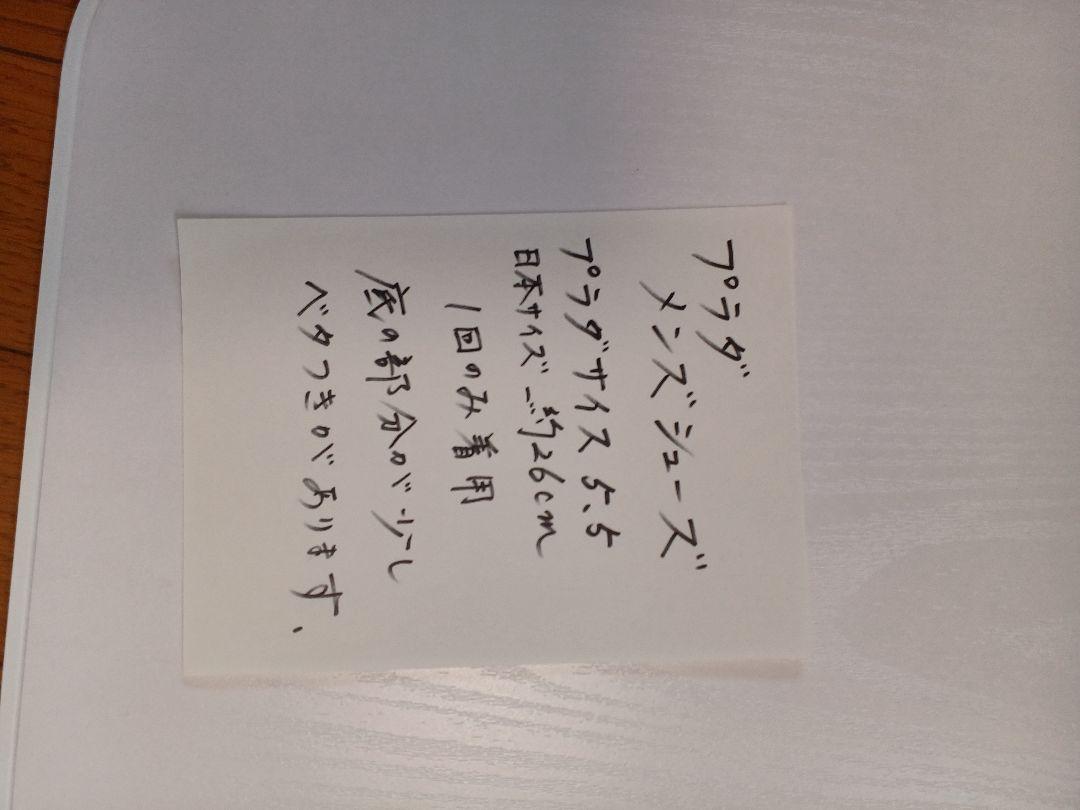 プラダ
メンズシューズ
プラダサイズ 5.5
日本サイズ 約26cm
1回のみ着用
底の部分が少し
ベタつきがあります.